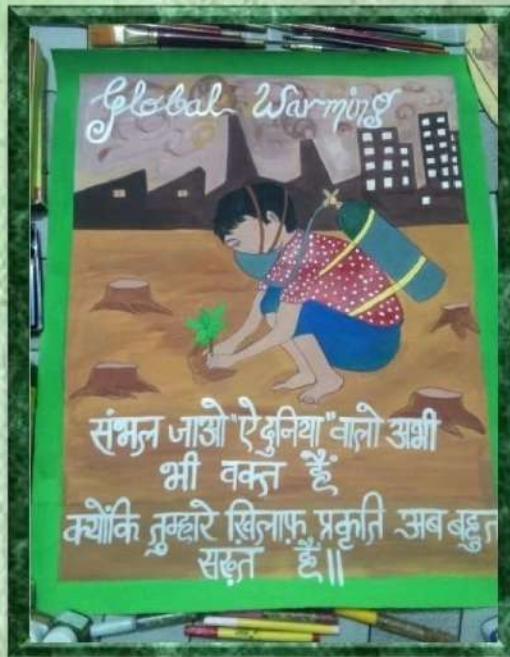 Global Warming
संभल जाओ "ऐ दुनिया" वालो अभी
भी वक्त हैं
क्योंकि तुम्हारे ख़िलाफ़ प्रकृति अब बहुत
सख़्त है॥